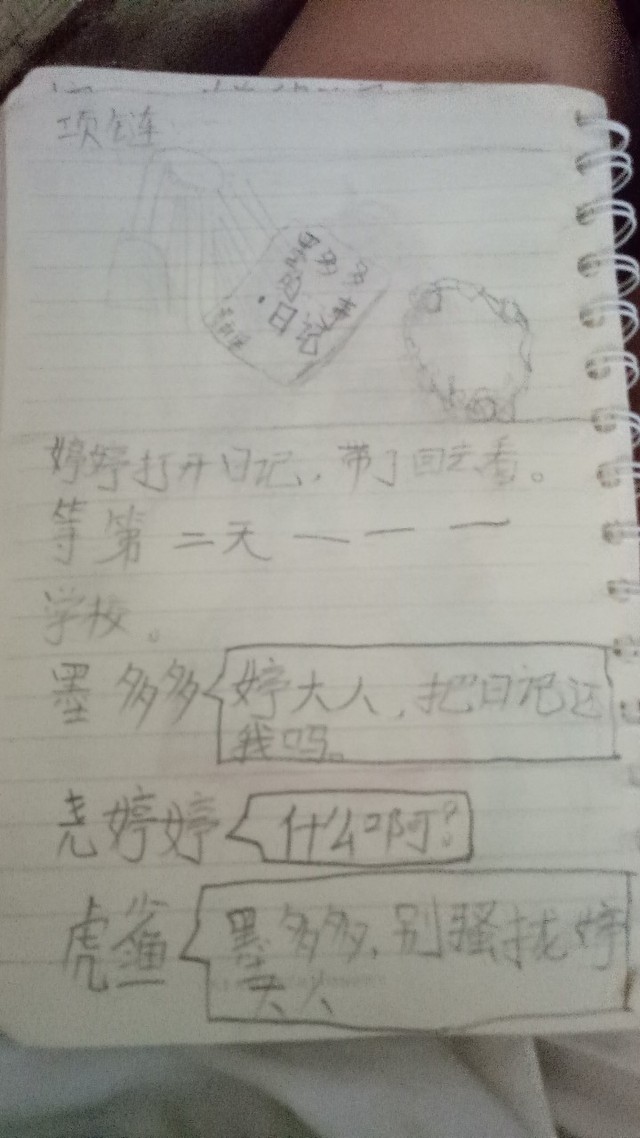 项链
墨多多
日记
婷婷打开日记，带了回去看。
等第二天— — —
学校。
墨多多
婷大人，把日记还
我吗。
尧婷婷
什么啊？
虎鲨
墨多多，别骚扰婷
大人